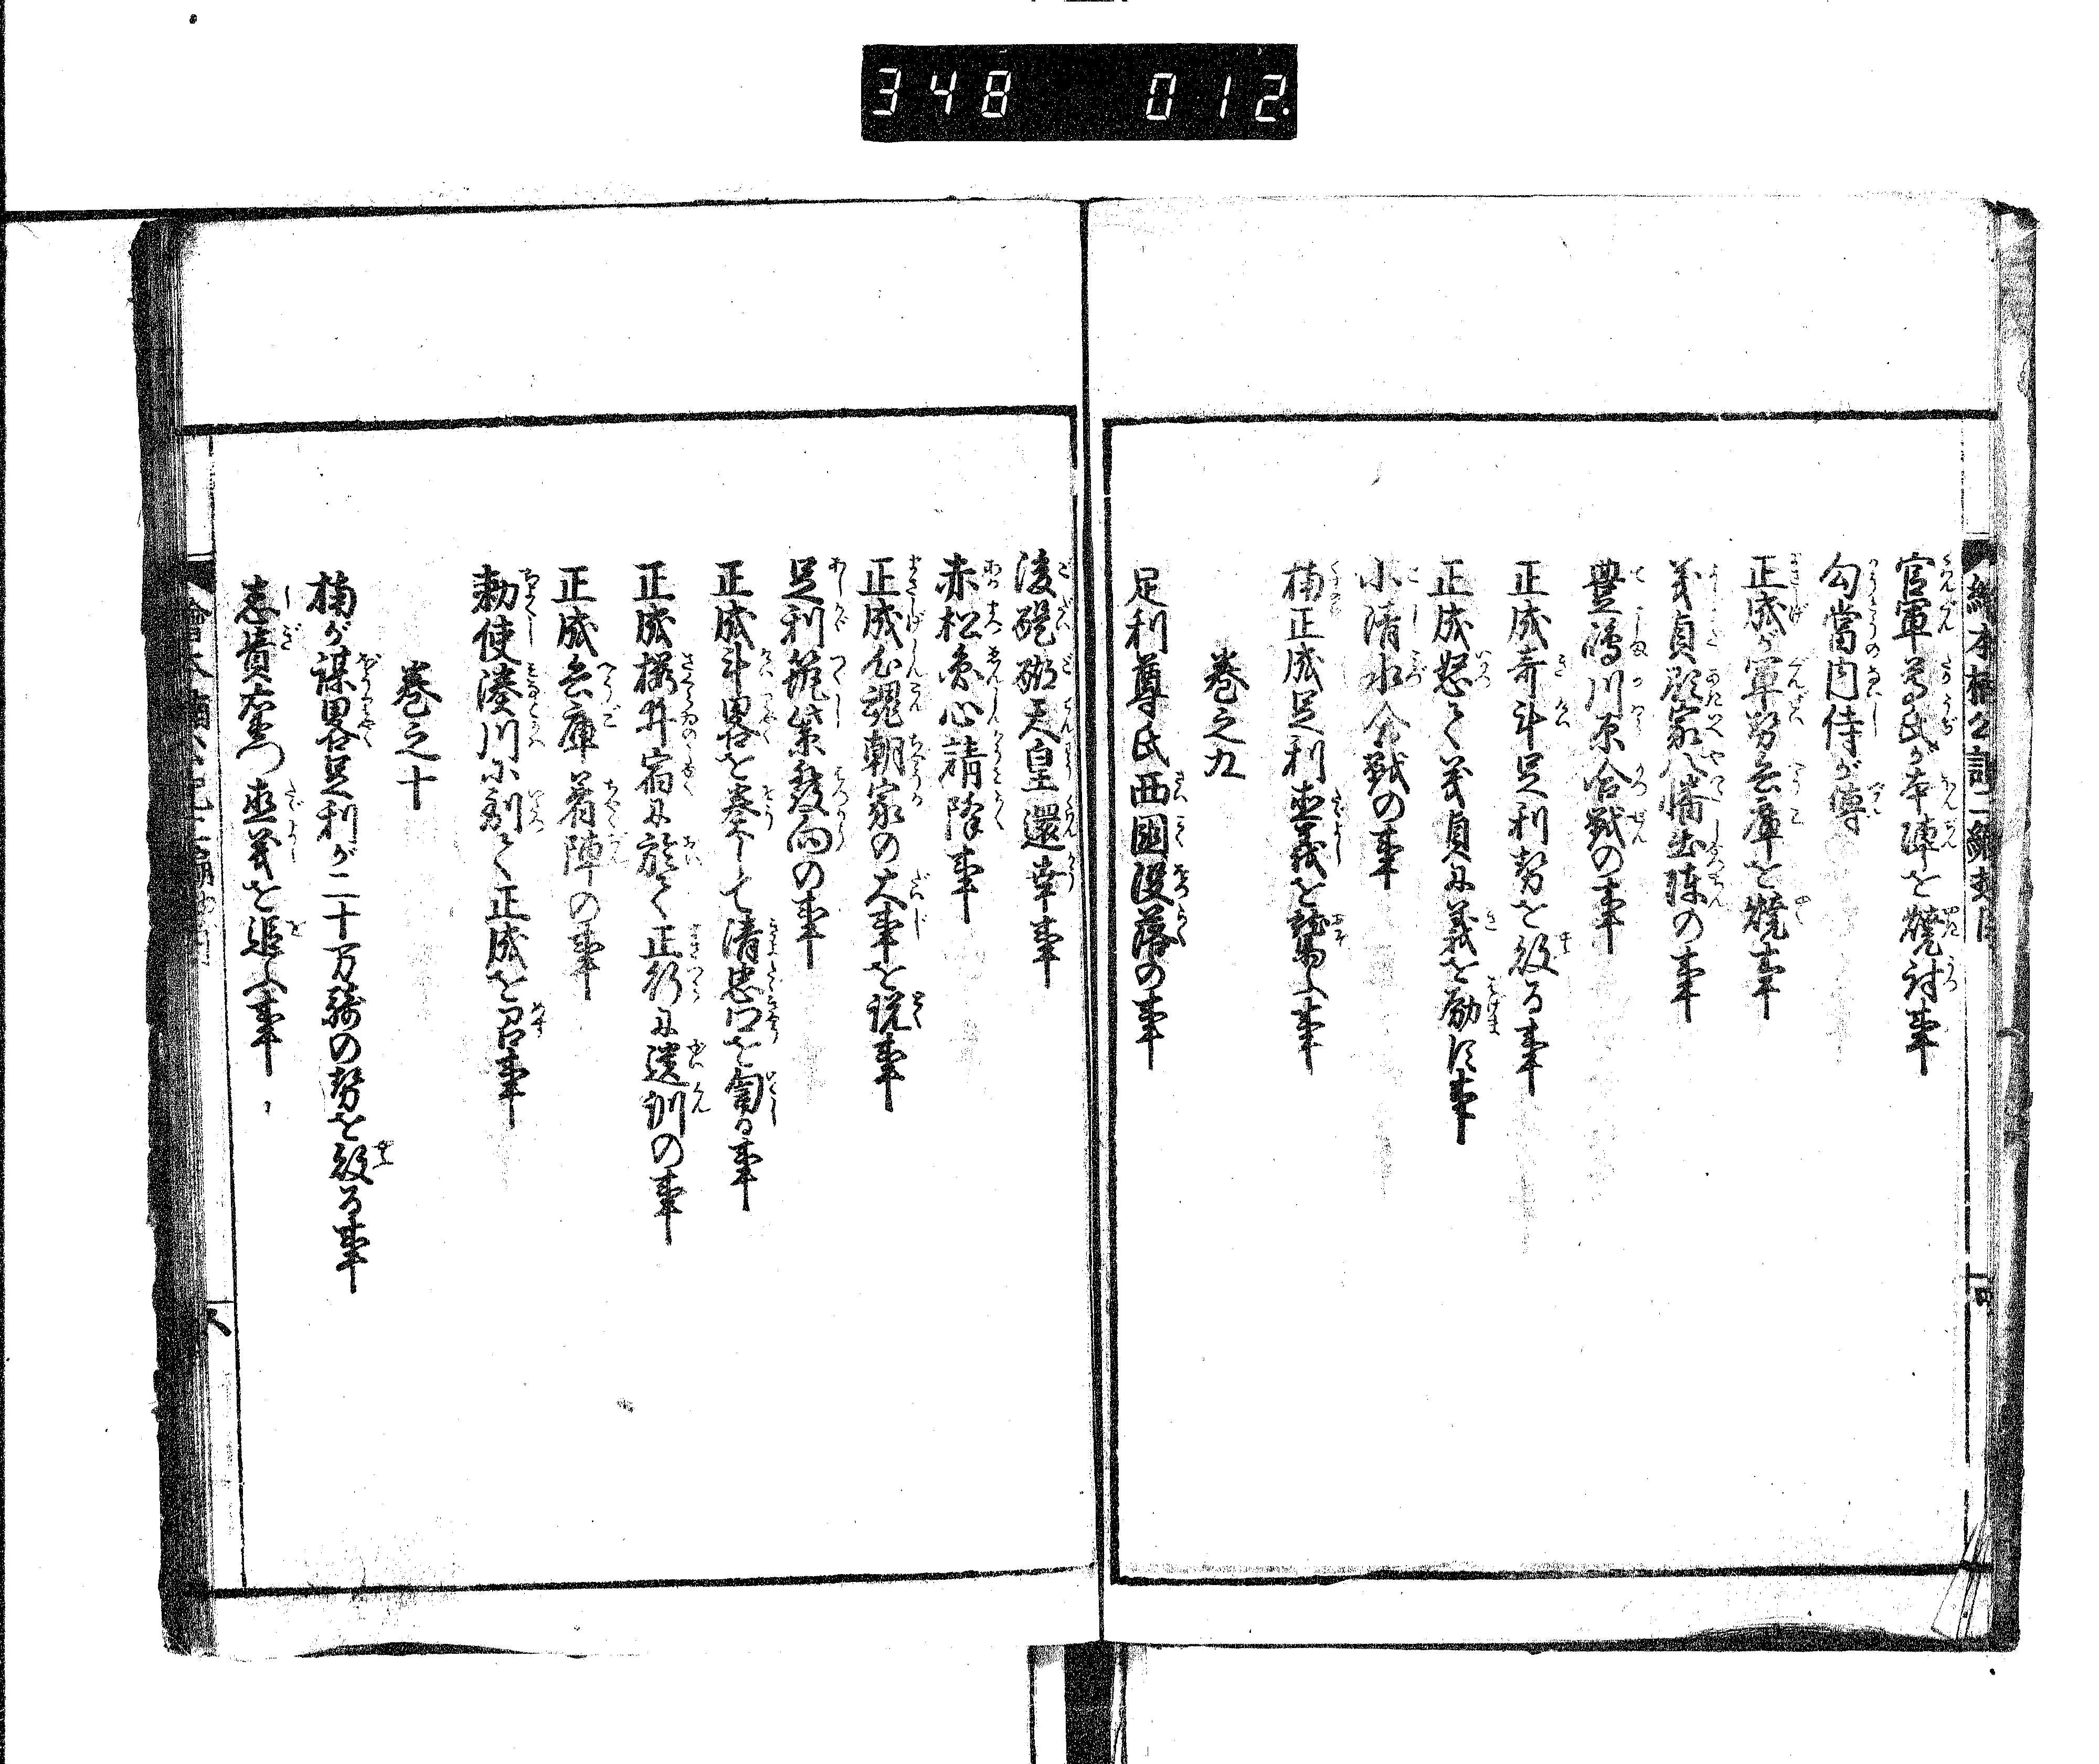 348 012
官軍尊氏が本陣を焼討事
勾當内侍が傳
正成が軍勢兵庫を焼事
義貞顕家八幡出陣の事
豊嶋川原合戦の事
正成奇計足利勢を破る事
正成怒て義貞に義を励す事
小清水合戦の事
楠正成足利直義を襲ふ事
巻之九
足利尊氏西國没落の事
後醍醐天皇還幸事
赤松圓心請降事
正成心魂朝家の大事を説事
足利筑紫發向の事
正成計畧を奏して清忠口を匍る事
正成櫻井宿に於て正行に遺訓の事
正成兵庫着陣の事
勅使湊川に到て正成を召事
巻之十
楠が謀畧足利が二十万騎の勢を破る事
志貴右衛門直義を追ふ事